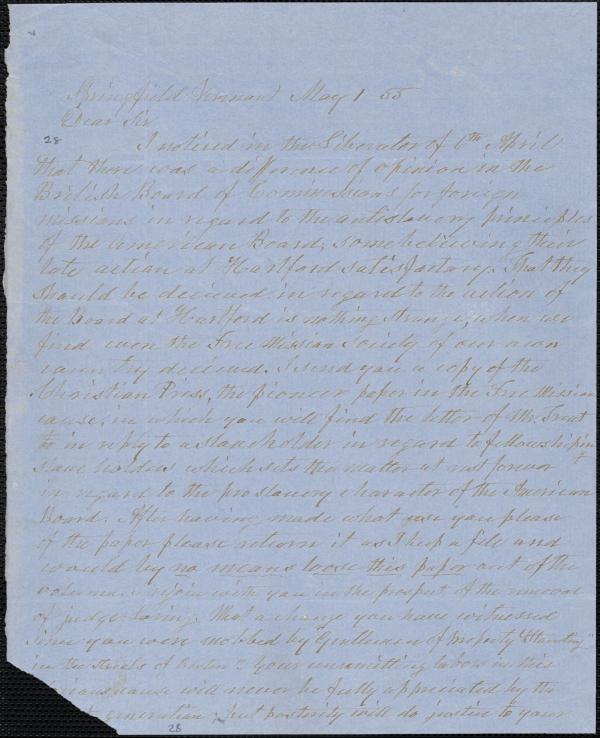 Springfield Vermont May 1 55
Dear Sir
28
I noticed in the Liberator of 6th April
that there was a difference of opinion in the
British Board of Commissions for foreign
missions in regard to the antislavery principles
of the American Board, some believing their
late action at Hartford satisfactory. That they
should be decieved in regard to the action of
the Board at Hartford is nothing strange, when we
find even the Free Mission Society of our own
country decieved. I send you a copy of the
Christian Press, the pioneer paper in the Free Mission
cause, in which you will find the letter of Mr. Treat
to in reply to a slaveholder in regard to fellowshiping
slave holders which sets the matter at rest forever
in regard to the proslavery character of the American
Board. After having made what use you please
of the paper please return it as I keep a file and
would by no means loose this paper out of the
volume. I rejoin with you in the prospect of the removal
of judge Loring. What a change you have witnessed
since you were mobbed by "Gentlemen of property & Standing"
in the streets of Boston". Your unremitting labors in this
cause will never be fully appreciated by the
generation; but posterity will do justice to your
28